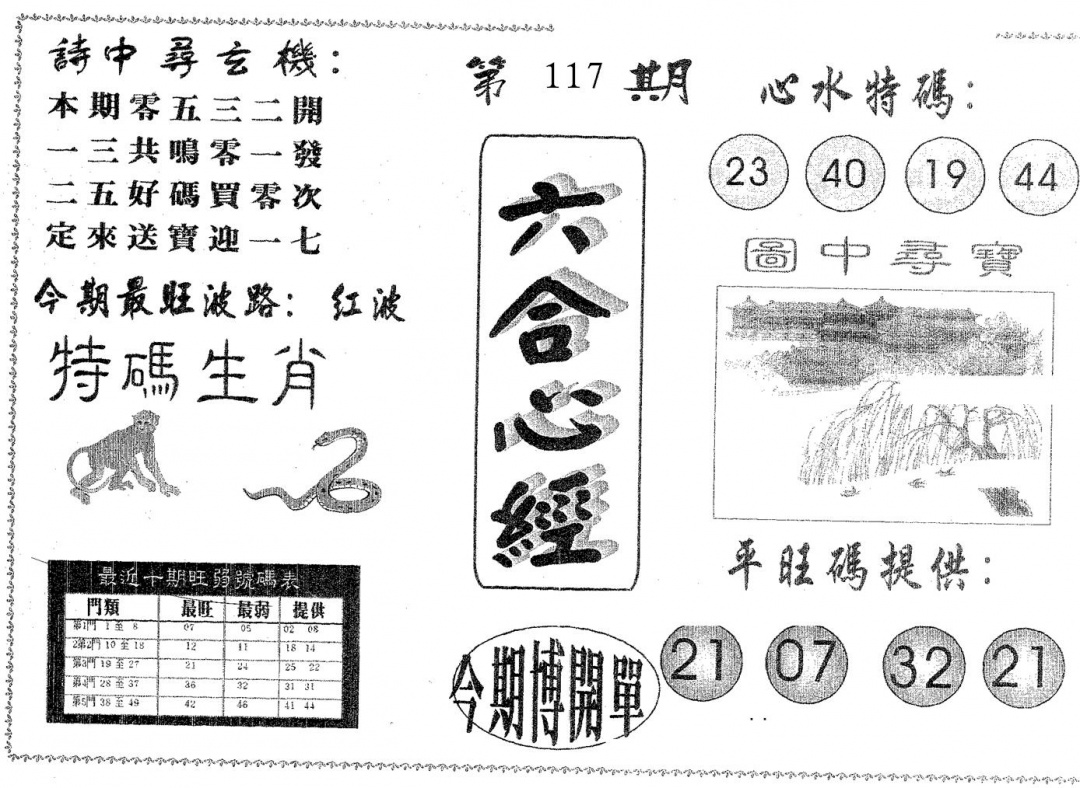 詩中尋玄機：
本期零五三二開
一三共鳴零一發
二五好碼買零次
定來送寶迎一七
今期最旺波路：紅波
特碼生肖
最近十期旺弱號碼表
門類 最旺 最弱 提供
第1門 1 至 8 07 05 02 08
第2門 10 至 18 12 11 18 14
第3門 19 至 27 21 24 25 22
第4門 28 至 37 36 32 31 31
第5門 38 至 49 42 46 41 44
第 117 期
六合心經
今期博開單
心水特碼：
23 40 19 44
圖中尋寶
平旺碼提供：
21 07 32 21